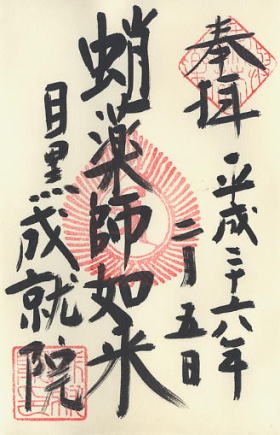 奉拝
平成二十六年
二月五日
蛸薬師如来
目黒成就院